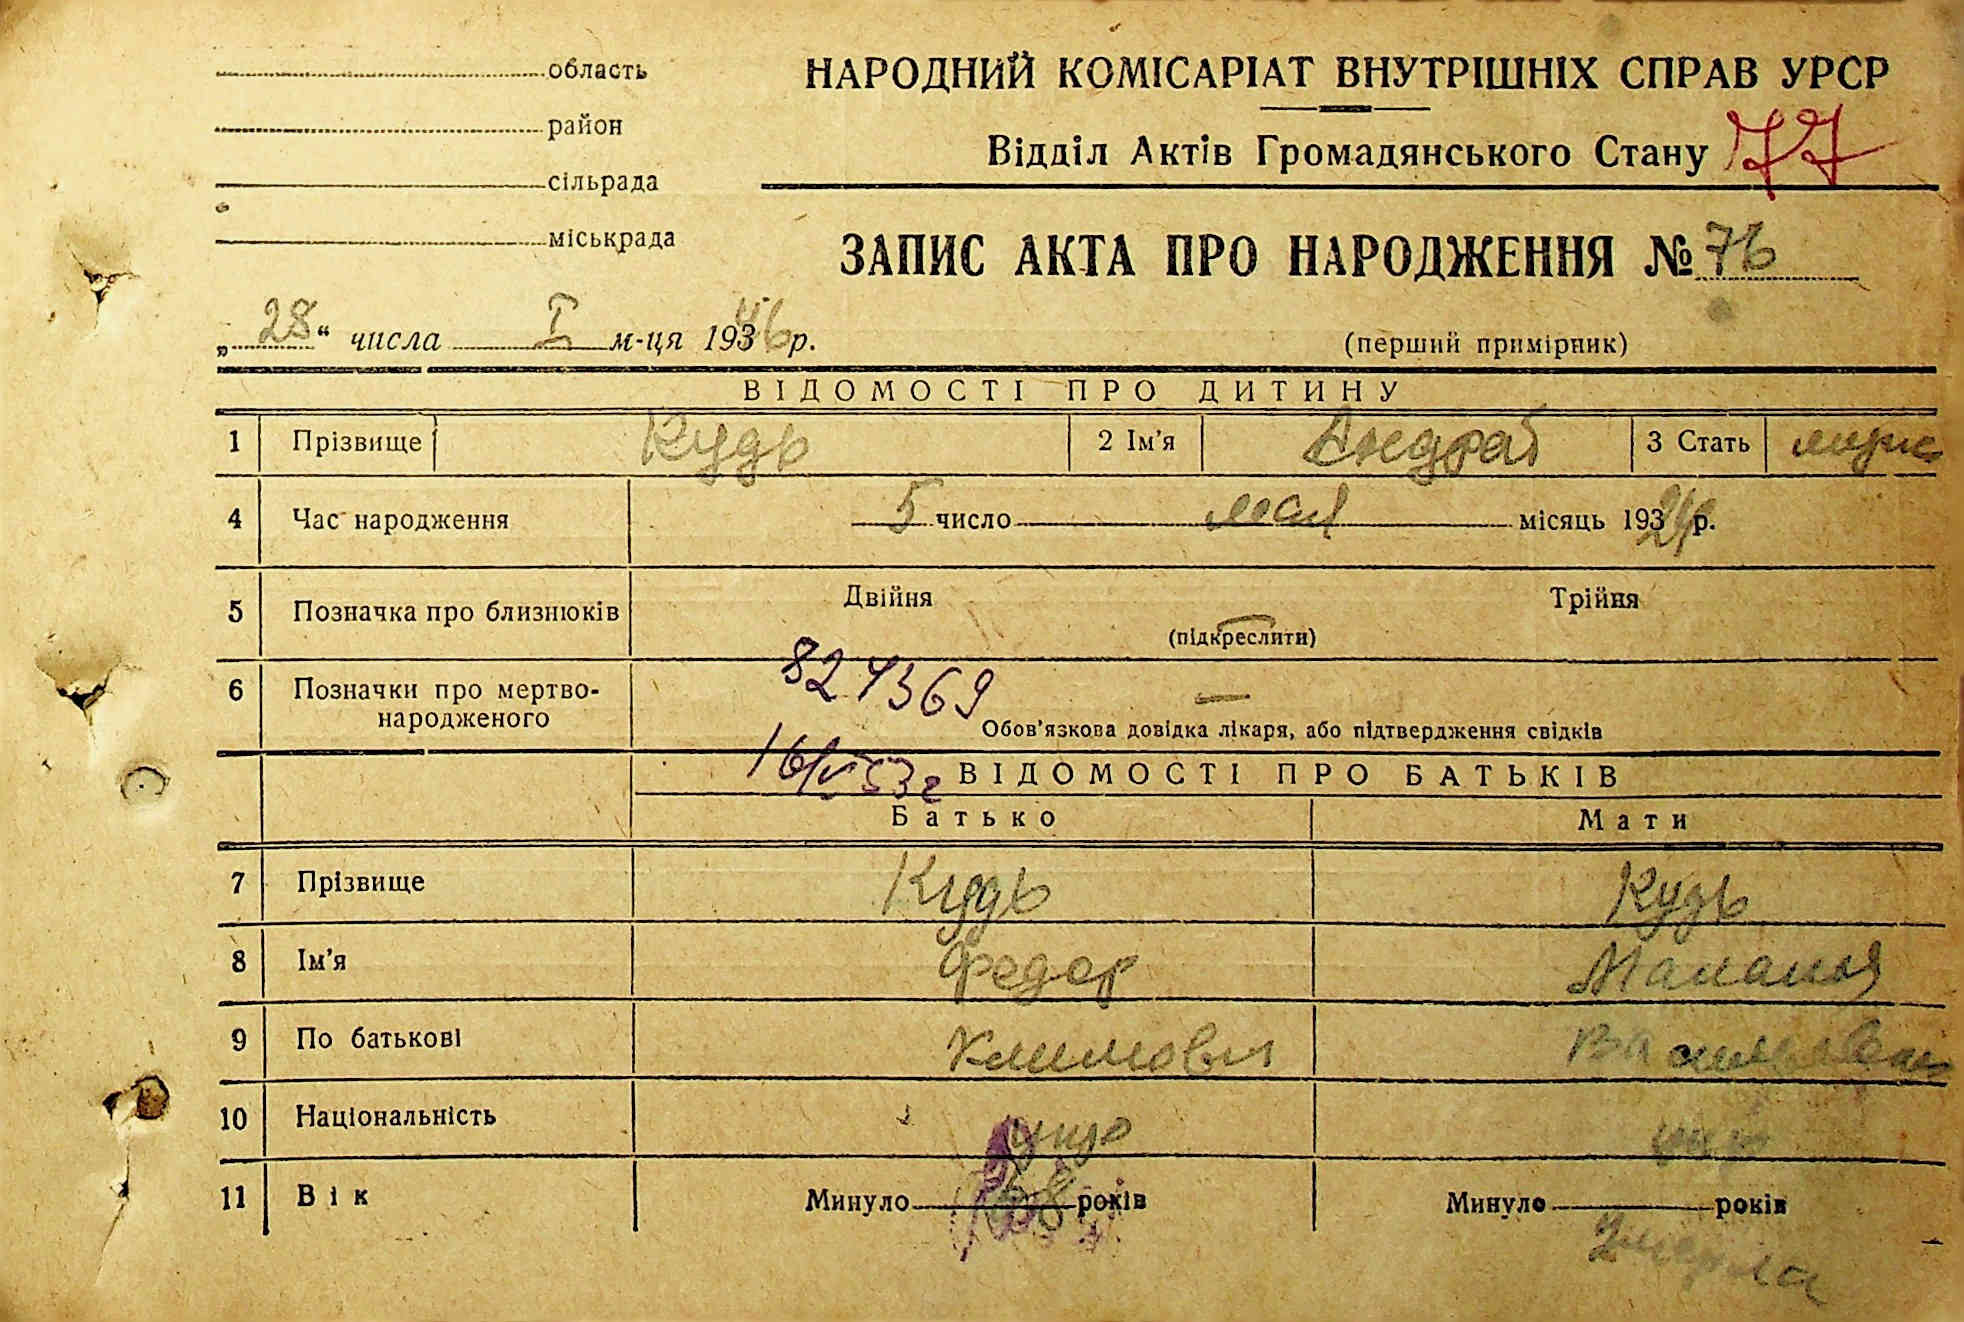 область
НАРОДНИЙ КОМІСАРІАТ ВНУТРІШНІХ СПРАВ УРСР
район
Відділ Актів Громадянського Стану 77
сільрада
міськрада
ЗАПИС АКТА ПРО НАРОДЖЕННЯ № 76
„28“ числа I м-ця 19346р.
(перший примірник)
ВІДОМОСТІ ПРО ДИТИНУ
1 Прізвище Кудь 2 Ім’я Андрей 3 Стать
4 Час народження 5 число мая місяць 193 24р.
5 Позначка про близнюків Двійня Трійня
(підкреслити)
6 Позначки про мертво-
народженого
827369
Обов’язкова довідка лікаря, або підтвердження свідків
16/V 53г ВІДОМОСТІ ПРО БАТЬКІВ
Батько Мати
7 Прізвище Кудь Кудь
8 Ім’я Федор Маланья
9 По батькові Климович Васильевна
10 Національність укр укр
11 Вік Минуло років Минуло років
Умерла